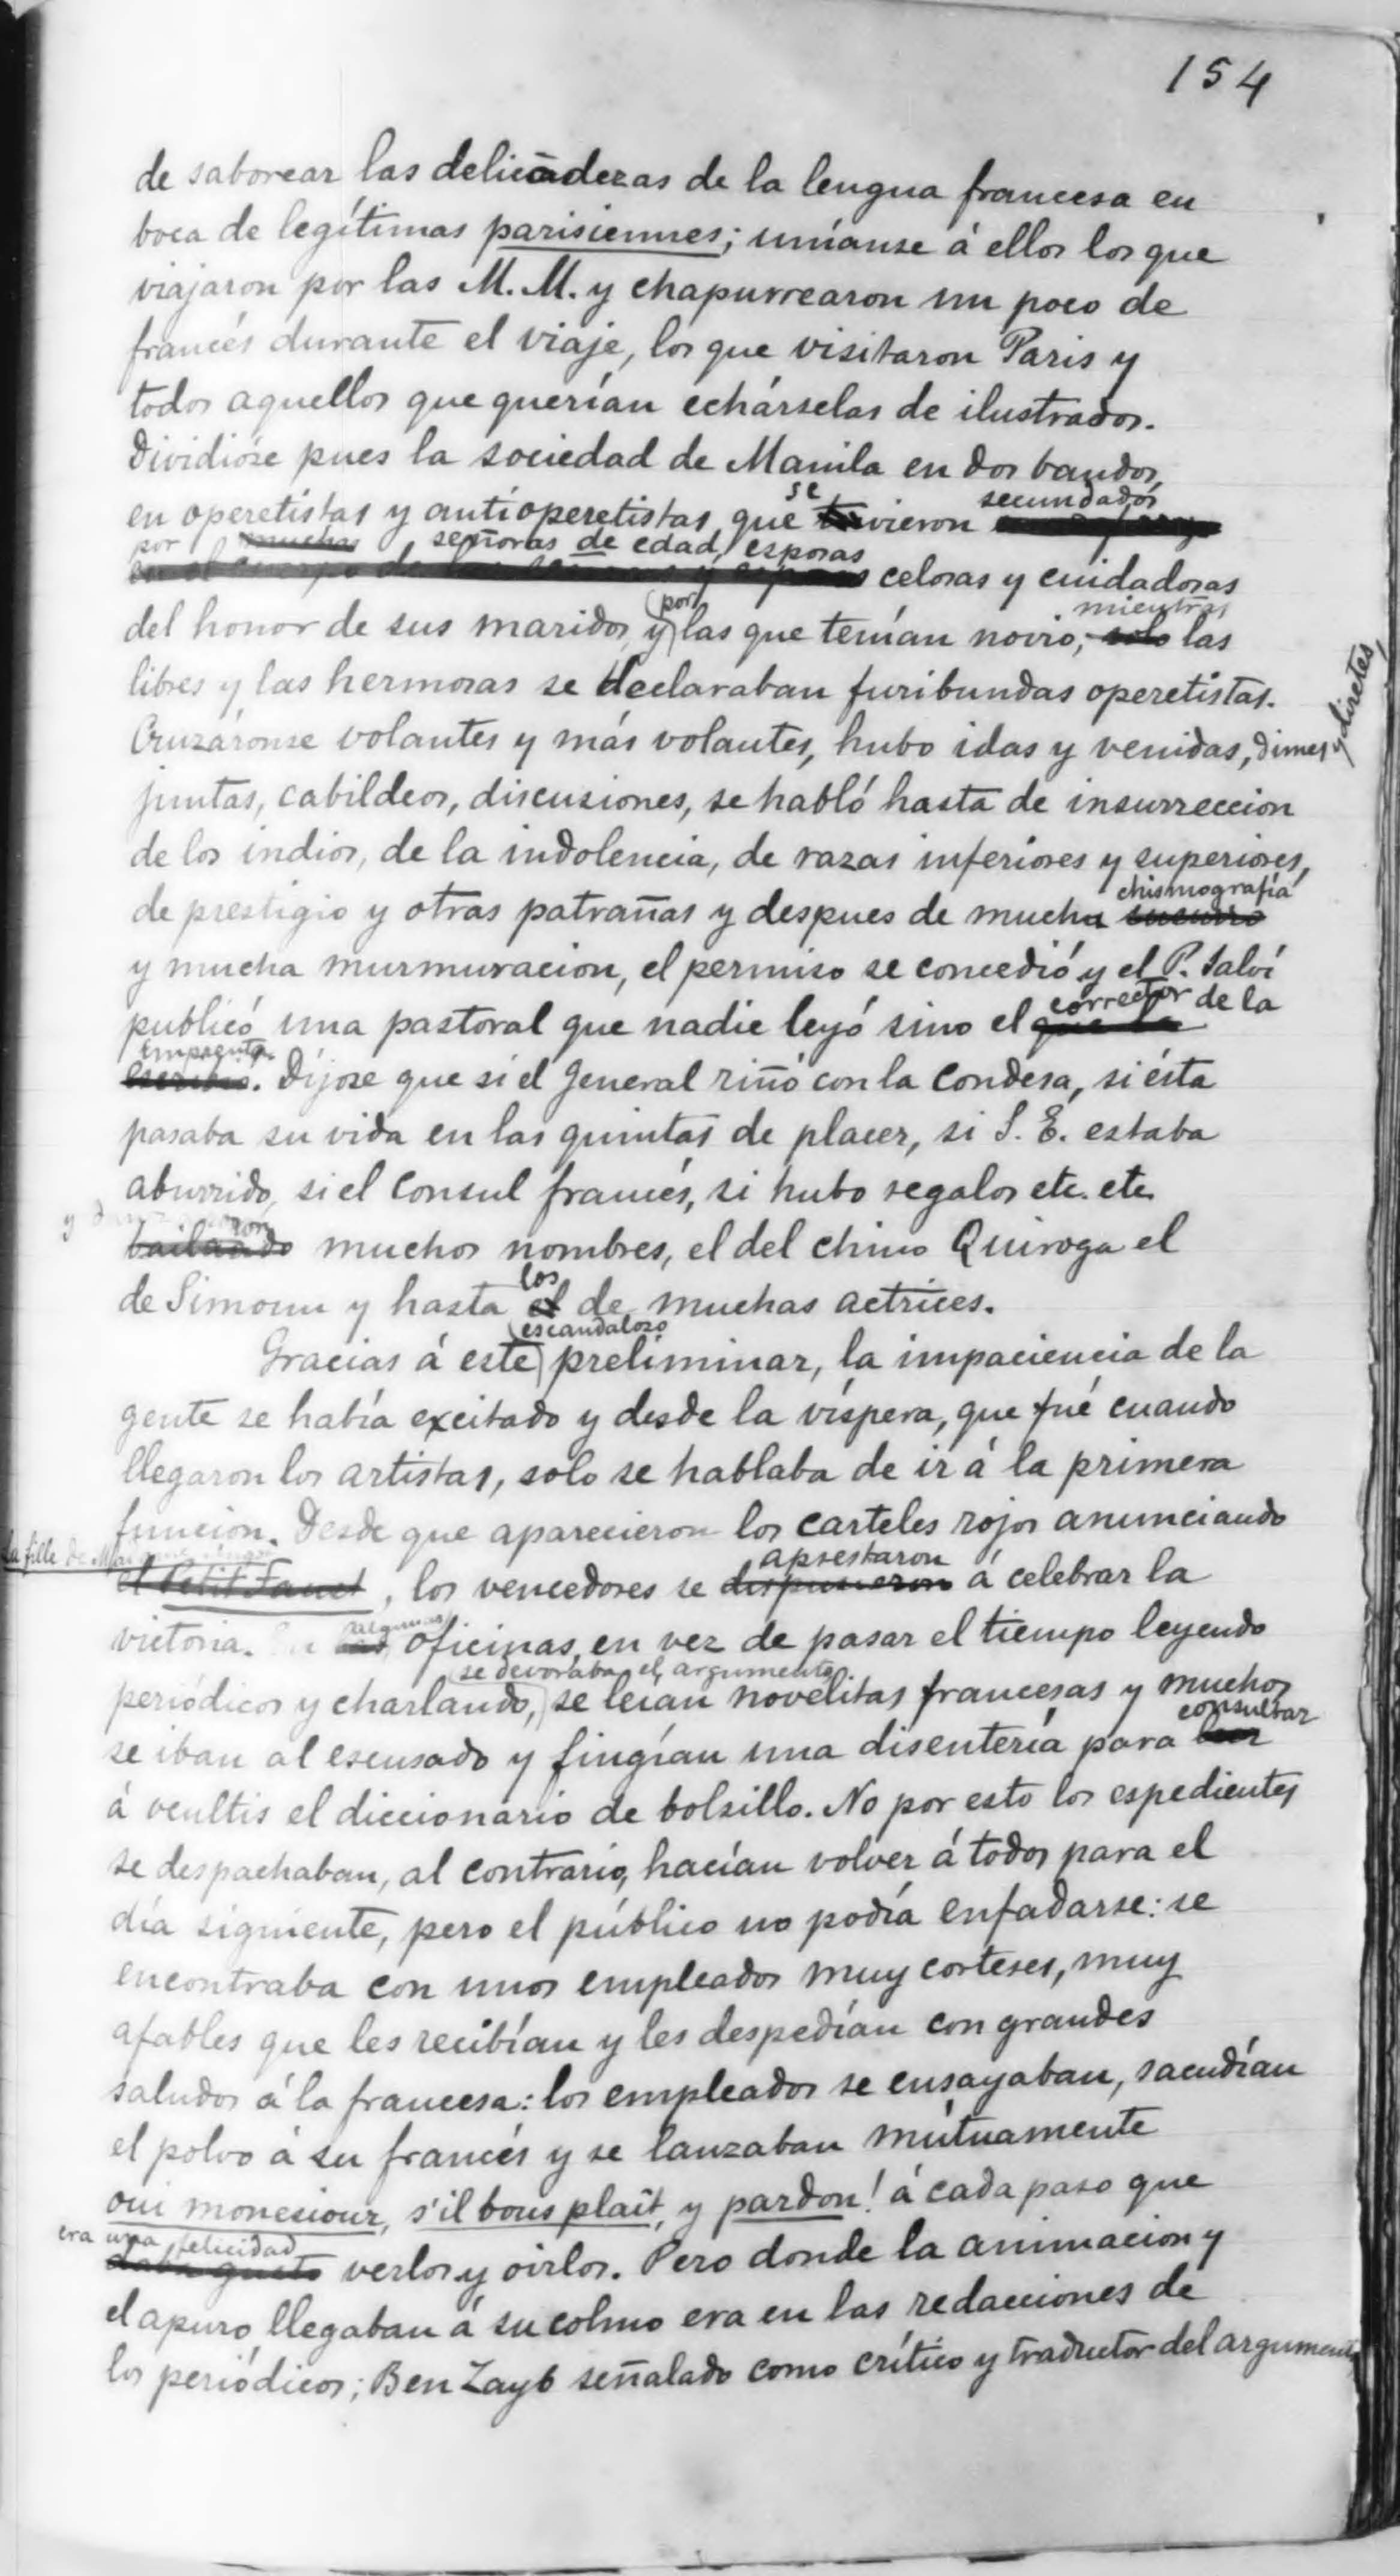 154
de saborear las delicadezas de la lengua francesa en
boca de legítimas parisiennes; uníanse á ellos los que
viajaron por las M. M. y chapurrearon un poco de
francés durante el viaje, los que visitaron Paris y
todos aquellos que querían echárselas de ilustrados.
Dividióse pues la sociedad de Manila en dos bandos,
se secundados
en operetistas y antioperetistas que vieron
por muchas, señoras de edad, esposas
celosas y cuidadoras
(por mientras
del honor de sus maridos, y las que tenían novio; solo las
libres y las hermosas se declaraban furibundas operetistas.
Cruzáronse volantes y más volantes, hubo idas y venidas, dimes
y diretes,
juntas, cabildeos, discusiones, se habló hasta de insurreccion
de los indios, de la indolencia, de razas inferiores y superiores,
chismografía
de prestigio y otras patrañas y despues de mucha susurro
y mucha murmuracion, el permiso se concedió y el P. Salví
corrector de la
publicó una pastoral que nadie leyó sino el que la
imprenta.
escribió. Díjose que si el General riñó con la Condesa, si ésta
pasaba su vida en las quintas de placer, si S. E. estaba
aburrido, si el Consul francés, si hubo regalos etc. etc
y
bailando muchos nombres, el del chino Quiroga el
los
de Simoun y hasta el de muchas actrices.
(escandaloso
Gracias á este preliminar, la impaciencia de la
gente se había excitado y desde la víspera, que fué cuando
llegaron los artistas, solo se hablaba de ir á la primera
funcion. Desde que aparecieron los carteles rojos anunciando
La fille de
aprestaron
el Petit Faust, los vencedores se dispusieron á celebrar la
algunas
victoria. oficinas, en vez de pasar el tiempo leyendo
(se devoraba el argumento
periódicos y charlando, se leían novelitas francesas y muchos
consultar
se iban al escusado y fingían una disentería para leer
á ocultis el diccionario de bolsillo. No por esto los espedientes
se despachaban, al contrario, hacían volver á todos para el
día siguiente, pero el público no podía enfadarse: se
encontraba con unos empleados muy corteses, muy
afables que les recibían y les despedían con grandes
saludos á la francesa: los empleados se ensayaban, sacudían
el polvo á su francés y se lanzaban mútuamente
oui monesiour, s'il bous plait, y pardon! á cada paso que
era una felicidad
daba gusto verlos y oirlos. Pero donde la animacion y
el apuro llegaban á su colmo era en las redacciones de
los periódicos; Ben Zayb señalado como crítico y traductor del argumento